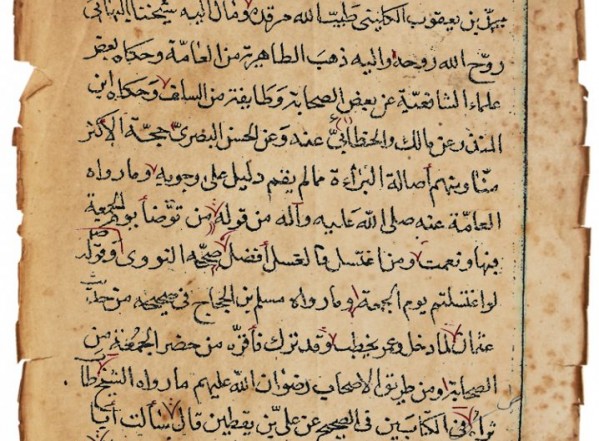 محمد بن يعقوب الكليني طيب الله مرقده ومال اليه شيخنا البهائي
روح الله روحه واليه ذهب الظاهرية من العامة وحكاه بعض
علماء الشافعية عن بعض الصحابة وطايفة من السلف وحكاه ابن
المنذر عن مالك والخطابي عنه وعن الحسن البصري حجة الاكثر
منا ومنهم اصالة البراءة ما لم يقم دليل على وجوبه وما رواه
العامة عنه صلى الله عليه وآله من قوله من توضأ يوم الجمعة
فبها ونعمت ومن اغتسل فالغسل أفضل صححه النووى وقوله
لو اغتسلتم يوم الجمعة وما رواه مسلم بن الحجاج في صحيحه من حديث
عثمان لما دخل وعمر يخطب وقد ترك فأقره من حضر الجمعة من
الصحابة ومن طريق الاصحاب رضوان الله عليهم ما رواه الشيخ طاب
ثراه في الكتابين في الصحيح عن علي بن يقطين قال سألت أبا